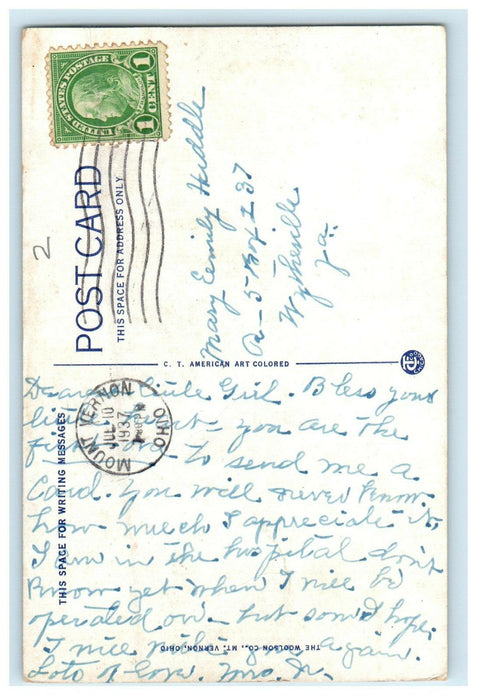 UNITED STATES POSTAGE
1 CENT 1
2
POST CARD
THIS SPACE FOR ADDRESS ONLY
Mary Emily Huddle
R-5 Box 237
Wytheville
Va.
C. T. AMERICAN ART COLORED
MOUNT VERNON OHIO
JUL 10
1937
THIS SPACE FOR WRITING MESSAGES
Dear Little Girl. Bless your
little heart you are the
first one to send me a
Card. You will never know
how much I appreciate it,
I am in the hospital don't
know yet when I will be
operated on - but soon I hope.
I will write you again.
Lots of love. Mrs. Jr.
THE WOOLSON CO., MT. VERNON, OHIO